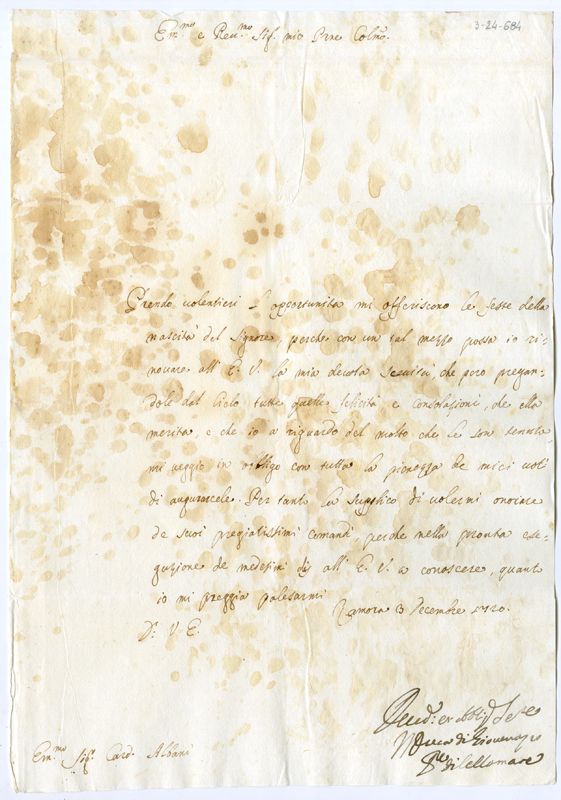 3-24-684
Em.mo e Reu.mo Sig. mio Pne Colmo.
Prendo uolentieri l'opportunita mi offeriscono le feste della
nascita del Signore, perche con un tal mezzo possa io ri-
nouare all'E. V. la mia deuota seruitu, che pero pregan-
dole dal Cielo tutte quelle felicita e consolazioni, che ella
merita, e che io a riguardo del molto che le son tenuto
mi ueggio in obligo con tutta la pienezza de miei uoti
di augurarcele. Per tanto la supplico di uolermi onorare
de suoi pregiatissimi comandi perche nella pronta ese-
guzione de medesimi dia all'E. V. a conoscere, quanto
io mi preggia palesarmi
Zamora 3 Decembre 1720.
D. V. E.
Seru.
Il Duca di Giouenazzo
di Cellamare
Em.mo Sig. Card. Albani